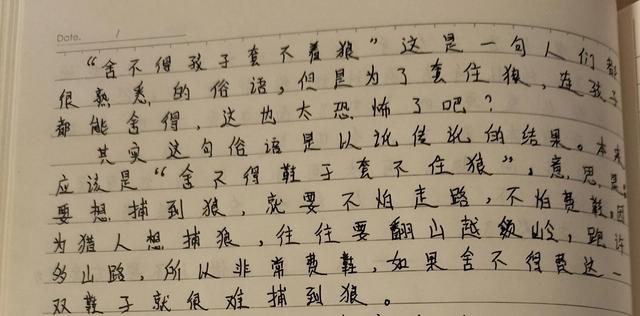 Date. /
“舍不得孩子套不着狼”这是一句人们都
很熟悉的俗语,但是为了套住狼,连孩子
都能舍得,这也太恐怖了吧?
其实这句俗语是以讹传讹的结果。本来
应该是“舍不得鞋子套不住狼”,意思是:
要想捕到狼,就要不怕走路,不怕费鞋。因
为猎人想捕狼,往往要翻山越岭,跑许
多山路,所以非常费鞋,如果舍不得费这一
双鞋子就很难捕到狼。